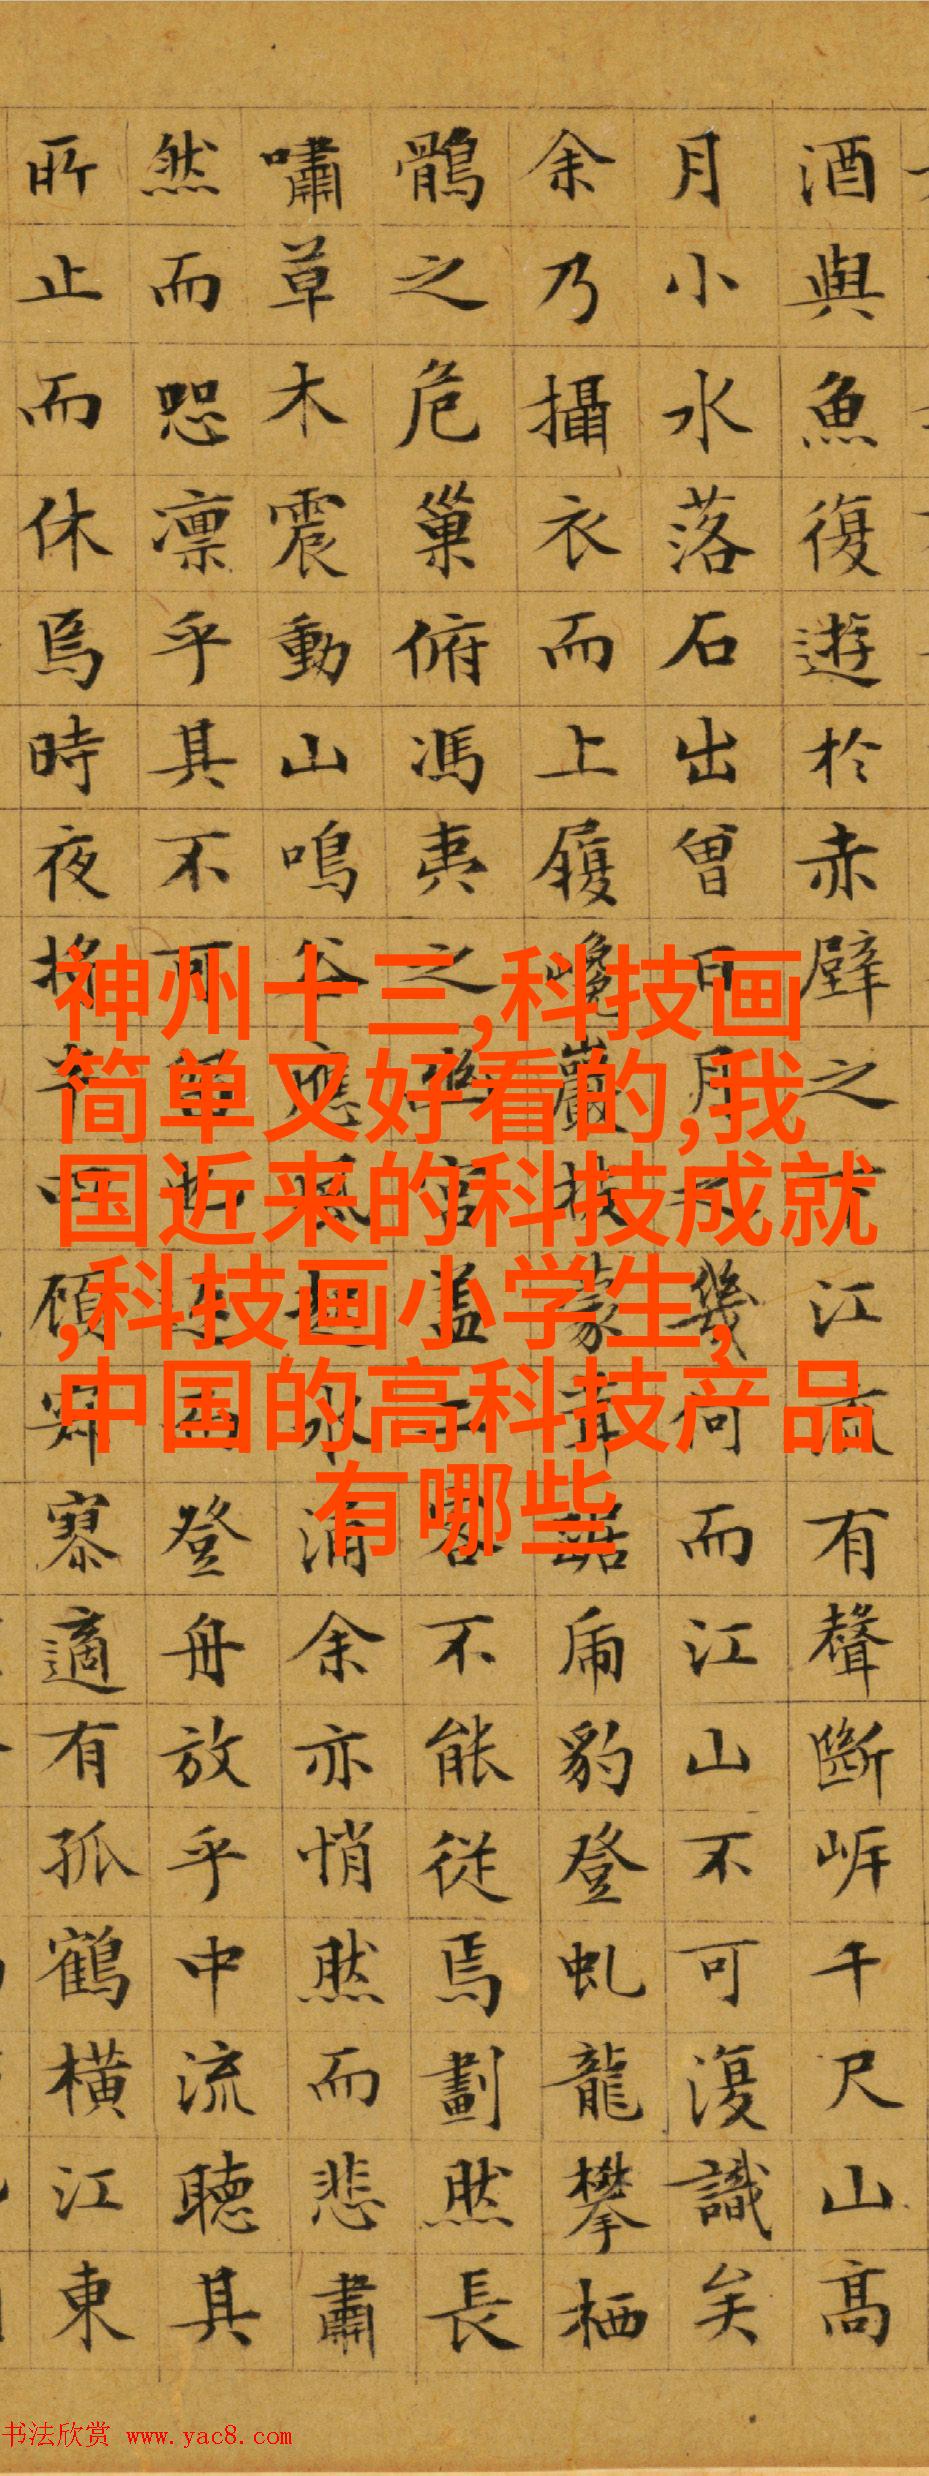 酒與魚復遊於赤壁之下江流有聲斷岸千尺山高
月小水落石出曾日月之幾何而江山不可復識矣
余乃攝衣而上履巉巖披蒙茸踞虎豹登虬龍攀栖
鶻之危巢俯馮夷之幽宮蓋二客不能從焉劃然長
嘯草木震動山鳴谷應風起水涌余亦悄然而悲肅
然而恐凛乎其不可留也反而登舟放乎中流聽其
所止而休焉時夜將半四顧寂寥適有孤鶴橫江東
神州十三,科技画
简单又好看的,我
国近来的科技成就
,科技画小学生,
中国的高科技产品
有哪些
书法欣赏 www.yac8.com